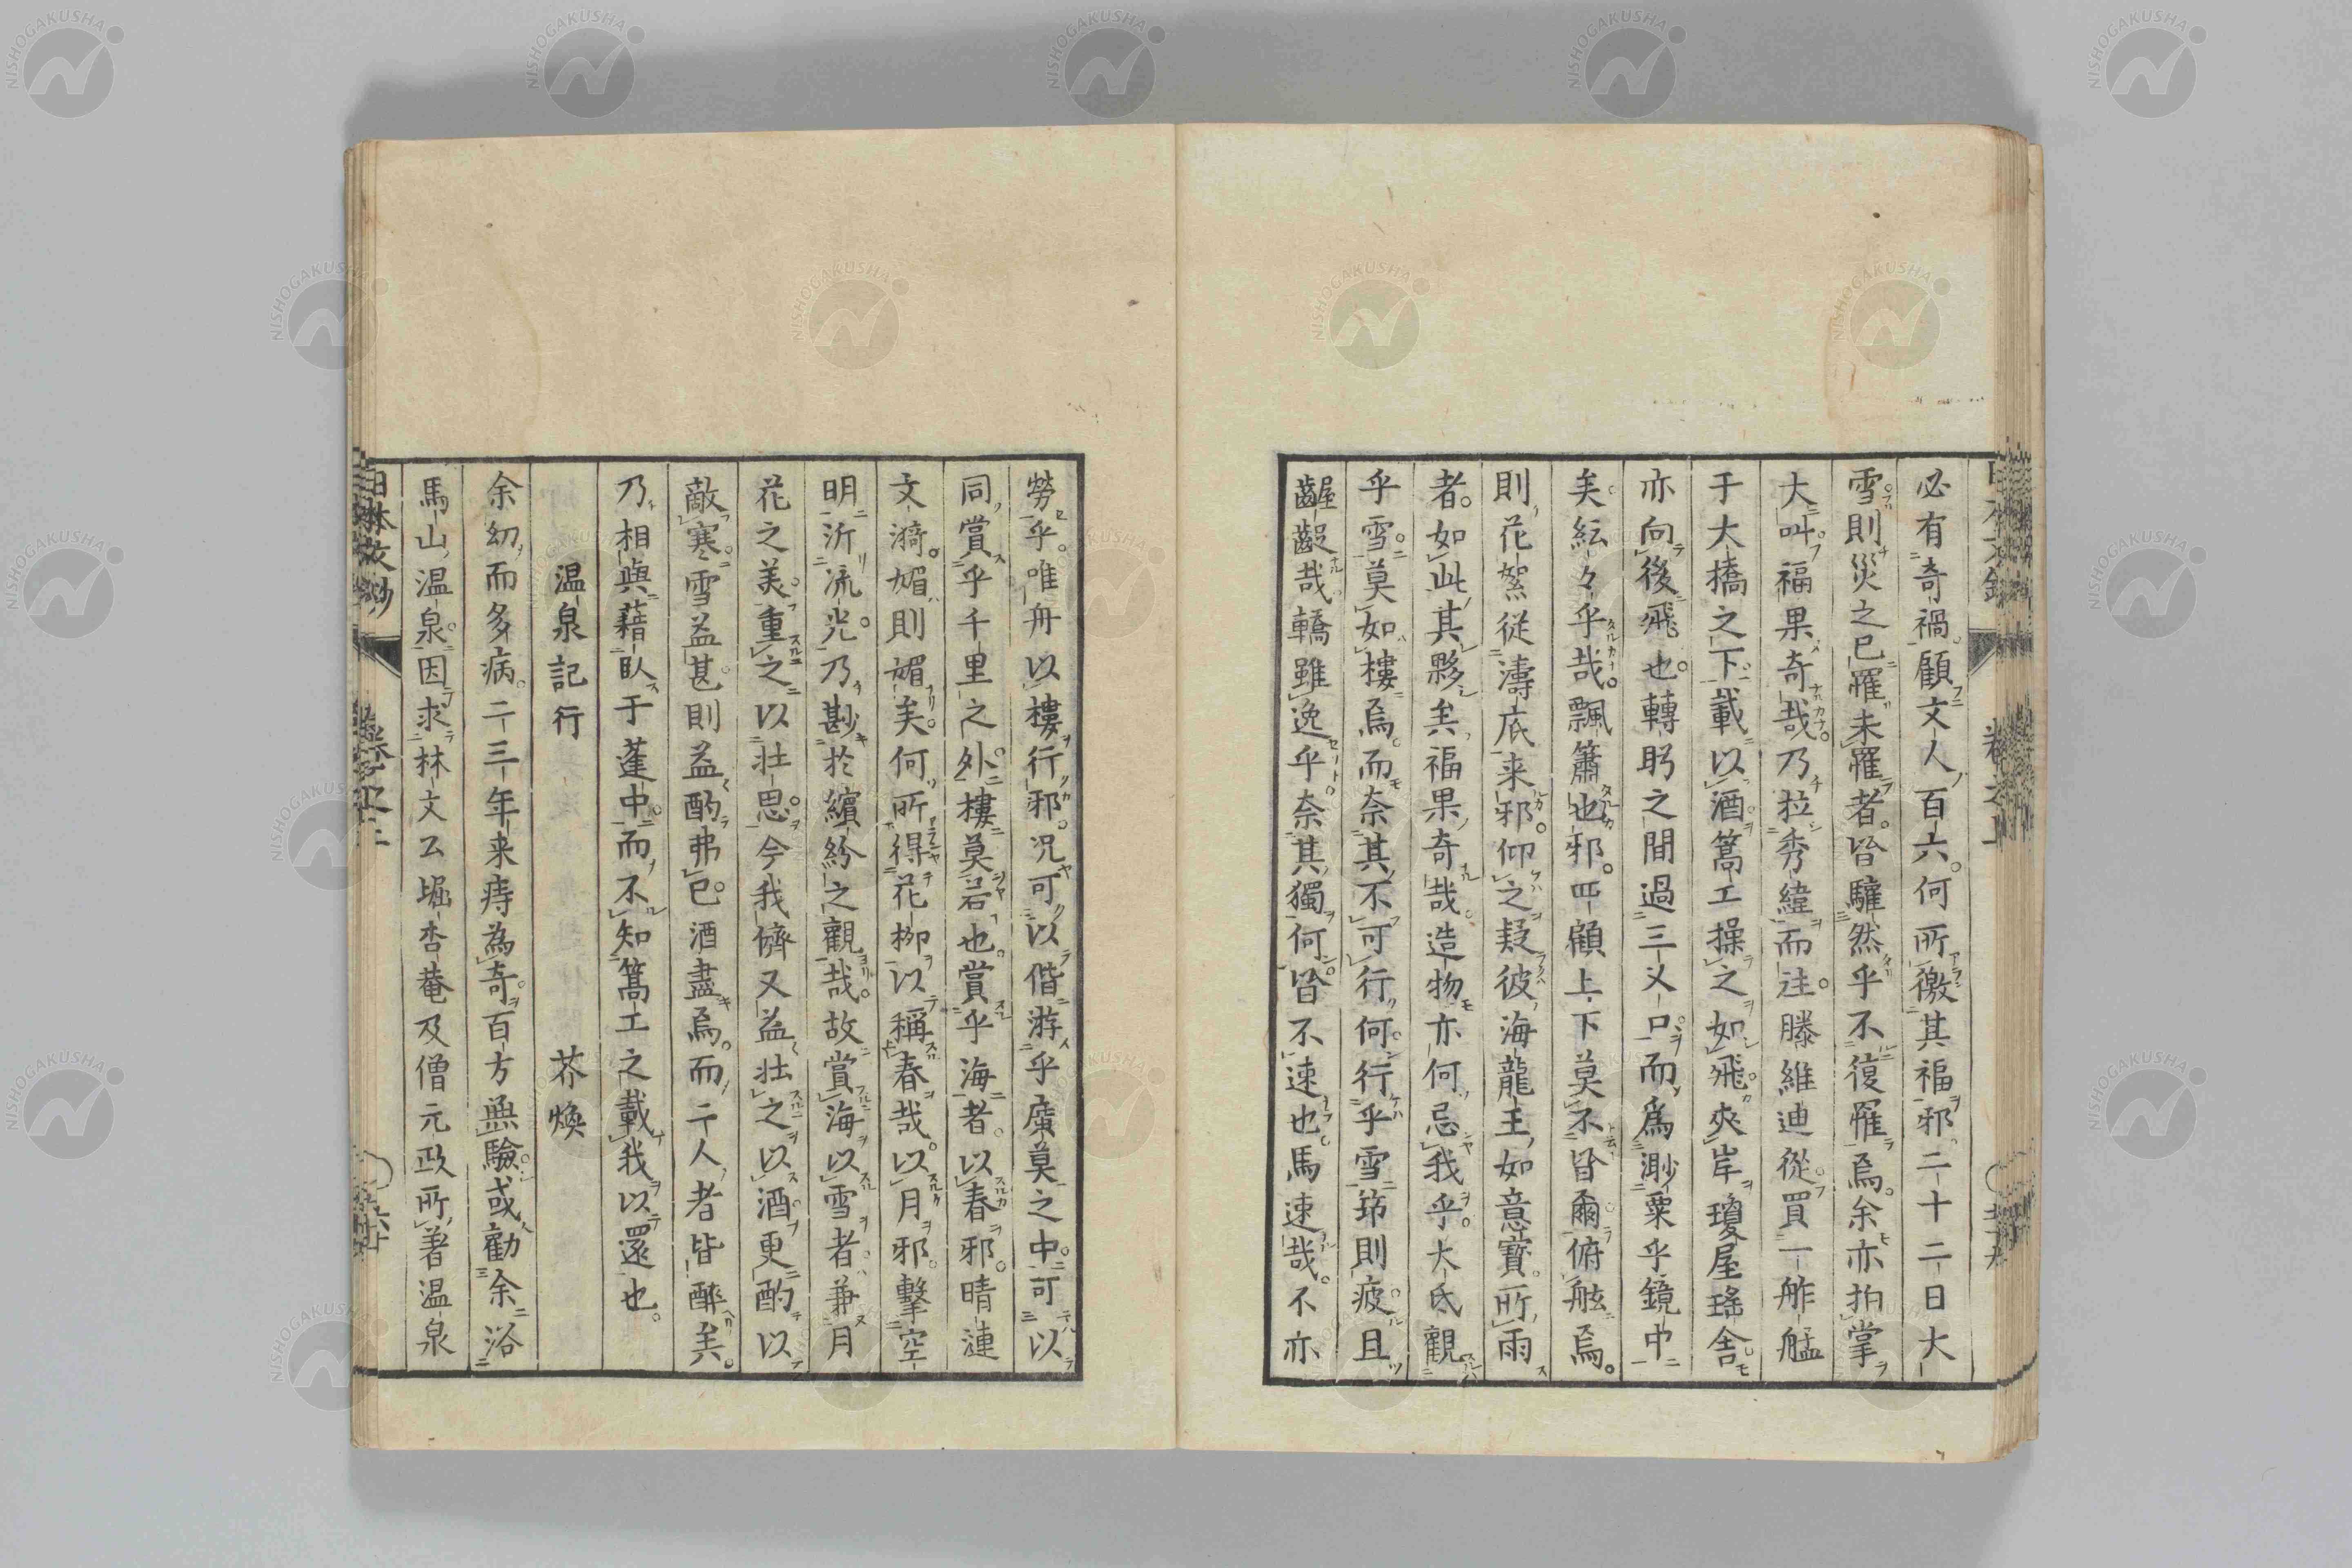 必有奇禍。顧文人百六。何所徼其福邪。二十二日大
雪。則災之已罹未罹者。皆驩然乎不復罹焉。余亦拍掌
大叫。福果奇哉。乃拉秀緯而注。滕維迪從。買一舴艋
于大橋之下。載以酒。篙工操之。如飛。夾岸瓊屋瑤舎。
亦向後飛也。轉眄之間過三乂口。而為渺粟乎鏡中
矣。紜々乎哉。飄簫也邪。四顧上下莫不皆爾。俯舷焉。
則花絮從濤底来邪。仰之疑彼海龍王如意寶。所雨
者。如此其夥矣。福果奇哉。造物亦何忌我乎。大氐觀
乎雪。莫如樓焉。而奈其不可行何。行乎雪笻則疲。且
齷齪哉。轎雖逸乎。奈其獨何。皆不速也。馬速哉。不亦
勞乎。唯舟以樓行邪。况可以偕游乎廣莫之中。可以
同賞乎千里之外。樓莫若也。賞乎海者。以春邪。晴漣
文漪。媚則媚矣。何所得花柳以稱春哉。以月邪。擊空
明泝流光。乃尠於繽紛之觀哉。故賞海以雪者。兼月
花之美。重之以壮思。今我儕又益壮之以酒。更酌以
敵寒。雪益甚。則益酌弗已。酒盡焉。而二人者皆醉矣。
乃相與藉臥于蓬中。而不知篙工之載我以還也。
温泉記行　芥煥
余幼而多病。二三年来痔為奇。百方無驗。或勸余浴
馬山温泉。因求林文公堀杏菴及僧元政所著温泉